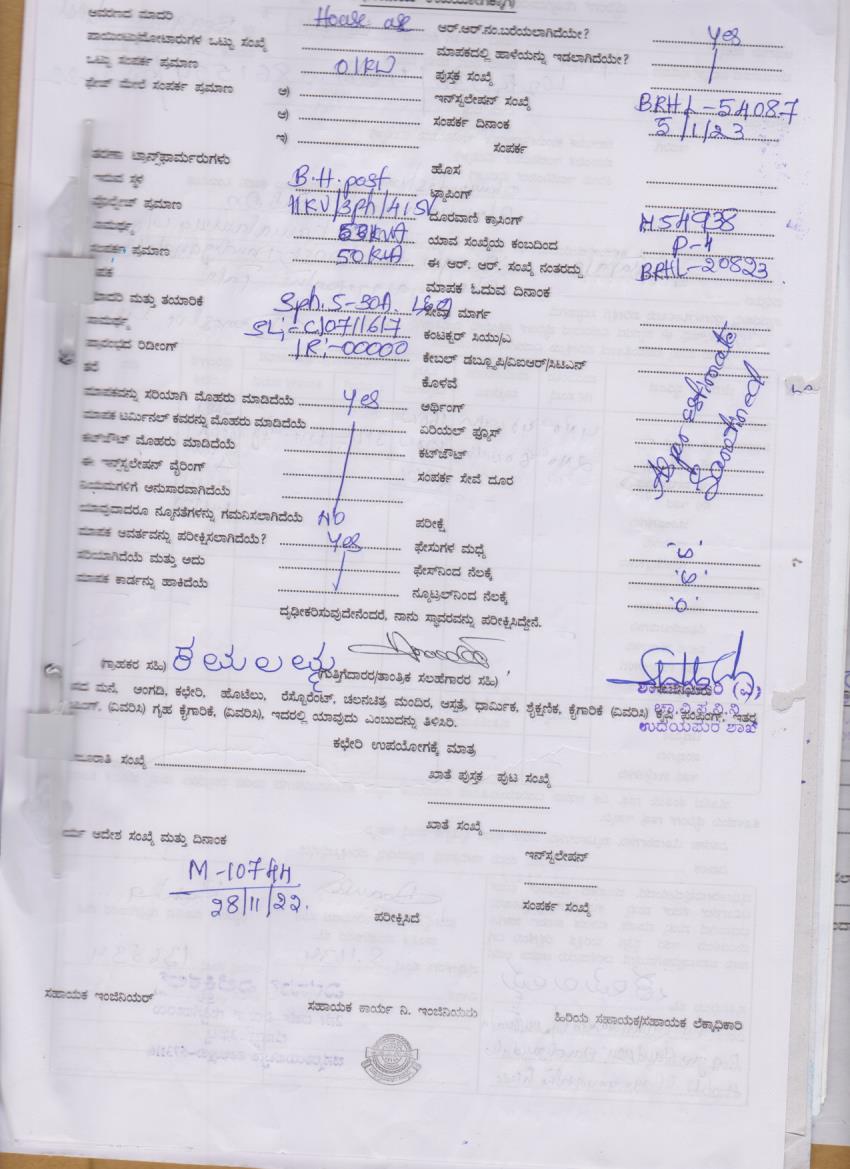 ಆವರಣದ ಮಾದರಿ House ಆರ್.ಆರ್.ನಂ.ಬರೆಯಲಾಗಿದೆಯೇ? yes
ಪಾಯಿಂಟು/ಮೋಟಾರುಗಳ ಒಟ್ಟು ಸಂಖ್ಯೆ ಮಾಪಕದಲ್ಲಿ ಹಾಳೆಯನ್ನು ಇಡಲಾಗಿದೆಯೇ?
ಒಟ್ಟು ಸಂಪರ್ಕ ಪ್ರಮಾಣ 01KW ಪುಸ್ತಕ ಸಂಖ್ಯೆ
ಫೇಜ್ ಮೇಲೆ ಸಂಪರ್ಕ ಪ್ರಮಾಣ ಅ) ಇನ್‌ಸ್ಟಲೇಷನ್ ಸಂಖ್ಯೆ BRHL-54087
ಆ) ಸಂಪರ್ಕ ದಿನಾಂಕ 5/1/23
ಇ) ಸಂಪರ್ಕ
ತರಣಾ ಟ್ರಾನ್ಸ್‌ಫಾರ್ಮರುಗಳು ಹೊಸ
ಇರುವ ಸ್ಥಳ B.H. post ಟ್ಯಾಪಿಂಗ್
ವೊಲ್ಟೇಜ್ ಪ್ರಮಾಣ 11KV/3ph/415V ದೂರವಾಣಿ ಕ್ರಾಸಿಂಗ್ H54938
ಸಾಮರ್ಥ್ಯ 50KVA ಯಾವ ಸಂಖ್ಯೆಯ ಕಂಬದಿಂದ P-4
ಸಂಪರ್ಕ ಪ್ರಮಾಣ 50KVA ಈ ಆರ್. ಆರ್. ಸಂಖ್ಯೆ ನಂತರದ್ದು BRHL-20823
ಮಾಪಕ ಓದುವ ದಿನಾಂಕ
ಮಾದರಿ ಮತ್ತು ತಯಾರಿಕೆ Sph. 5-30A. L&G ಸೇವಾ ಮಾರ್ಗ
ಸಾಮರ್ಥ್ಯ SL:-C10711617 ಕಂಟಕ್ಟರ್ ಸಿಯು/ಎ
ಪ್ರಾರಂಭದ ರಿಡಿಂಗ್ IR:-00000 ಕೇಬಲ್ ಡಬ್ಲೂಪಿ/ವಿಐಆರ್/ಸಿಟಿಎಸ್
ಕೊಳವೆ
As per estimate
Sanctioned
ಮಾಪಕವನ್ನು ಸರಿಯಾಗಿ ಮೊಹರು ಮಾಡಿದೆಯೆ yes ಆರ್ಥಿಂಗ್
ಮಾಪಕ ಟರ್ಮಿನಲ್ ಕವರನ್ನು ಮೊಹರು ಮಾಡಿದೆಯೆ ಏರಿಯಲ್ ಫ್ಯೂಸ್
ಕಟ್‌ಔಟ್ ಮೊಹರು ಮಾಡಿದೆಯೆ ಕಟ್‌ಔಟ್
ಈ ಇನ್‌ಸ್ಟಲೇಷನ್ ವೈರಿಂಗ್ ಸಂಪರ್ಕ ಸೇವೆ ದೂರ
ನಿಯಮಗಳಿಗೆ ಅನುಸಾರವಾಗಿದೆಯೆ
ಯಾವುದಾದರೂ ನ್ಯೂನತೆಗಳನ್ನು ಗಮನಿಸಲಾಗಿದೆಯೆ NO ಪರೀಕ್ಷೆ
ಮಾಪಕ ಆವರ್ತವನ್ನು ಪರೀಕ್ಷಿಸಲಾಗಿದೆಯೆ? yes ಫೇಸುಗಳ ಮಧ್ಯೆ
ಸರಿಯಾಗಿದೆಯೆ ಮತ್ತು ಅದು ಫೇಸ್‌ನಿಂದ ನೆಲಕ್ಕೆ
ಮಾಪಕ ಕಾರ್ಡನ್ನು ಹಾಕಿದೆಯೆ ನ್ಯೂಟ್ರಲ್‌ನಿಂದ ನೆಲಕ್ಕೆ '0'
ದೃಢೀಕರಿಸುವುದೇನೆಂದರೆ, ನಾನು ಸ್ಥಾವರವನ್ನು ಪರೀಕ್ಷಿಸಿದ್ದೇನೆ.
(ಗ್ರಾಹಕರ ಸಹಿ) ಕಮಲಮ್ಮ (ಗುತ್ತಿಗೆದಾರರ/ತಾಂತ್ರಿಕ ಸಲಹೆಗಾರರ ಸಹಿ)
ಮನೆ, ಅಂಗಡಿ, ಕಛೇರಿ, ಹೊಟೆಲು, ರೆಸ್ಟೊರೆಂಟ್, ಚಲನಚಿತ್ರ ಮಂದಿರ, ಆಸ್ಪತ್ರೆ, ಧಾರ್ಮಿಕ, ಶೈಕ್ಷಣಿಕ, ಕೈಗಾರಿಕೆ (ವಿವರಿಸಿ) ಕೃಷಿ ಪಂಪಿಂಗ್, ಇತರ
(ವಿವರಿಸಿ) ಗೃಹ ಕೈಗಾರಿಕೆ, (ವಿವರಿಸಿ), ಇದರಲ್ಲಿ ಯಾವುದು ಎಂಬುದನ್ನು ತಿಳಿಸಿರಿ.
ಚಾ.ವಿ.ಸ.ನಿ.ನಿ
ಕಛೇರಿ ಉಪಯೋಗಕ್ಕೆ ಮಾತ್ರ
ಸಂಖ್ಯೆ ಖಾತೆ ಪುಸ್ತಕ ಪುಟ ಸಂಖ್ಯೆ
ಖಾತೆ ಸಂಖ್ಯೆ
ಆದೇಶ ಸಂಖ್ಯೆ ಮತ್ತು ದಿನಾಂಕ ಇನ್‌ಸ್ಟಲೇಷನ್
M-10744
28/11/22. ಸಂಪರ್ಕ ಸಂಖ್ಯೆ
ಪರೀಕ್ಷಿಸಿದೆ
ಸಹಾಯಕ ಇಂಜಿನಿಯರ್ ಸಹಾಯಕ ಕಾರ್ಯ ನಿ. ಇಂಜಿನಿಯರು ಹಿರಿಯ ಸಹಾಯಕ/ಸಹಾಯಕ ಲೆಕ್ಕಾಧಿಕಾರಿ